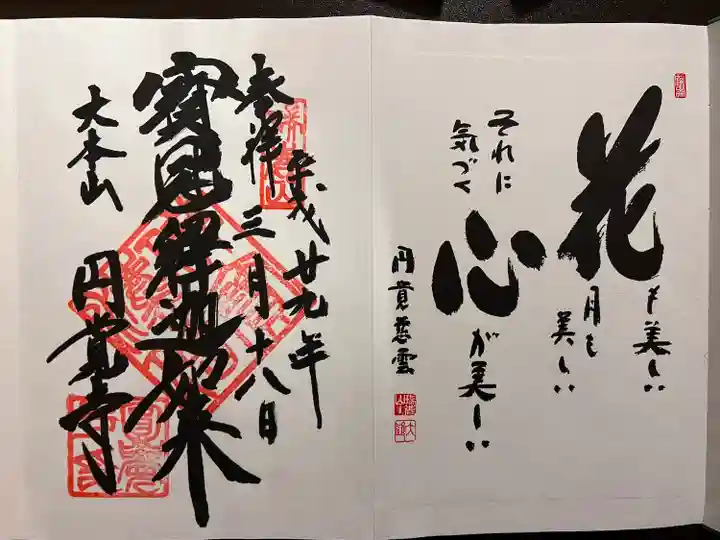 花も美しい
月も美しい
それに
気づく
心が美しい
円覚慈雲
奉拝
平成廿九年
三月十八日
寶冠釋迦如来
大本山
円覚寺